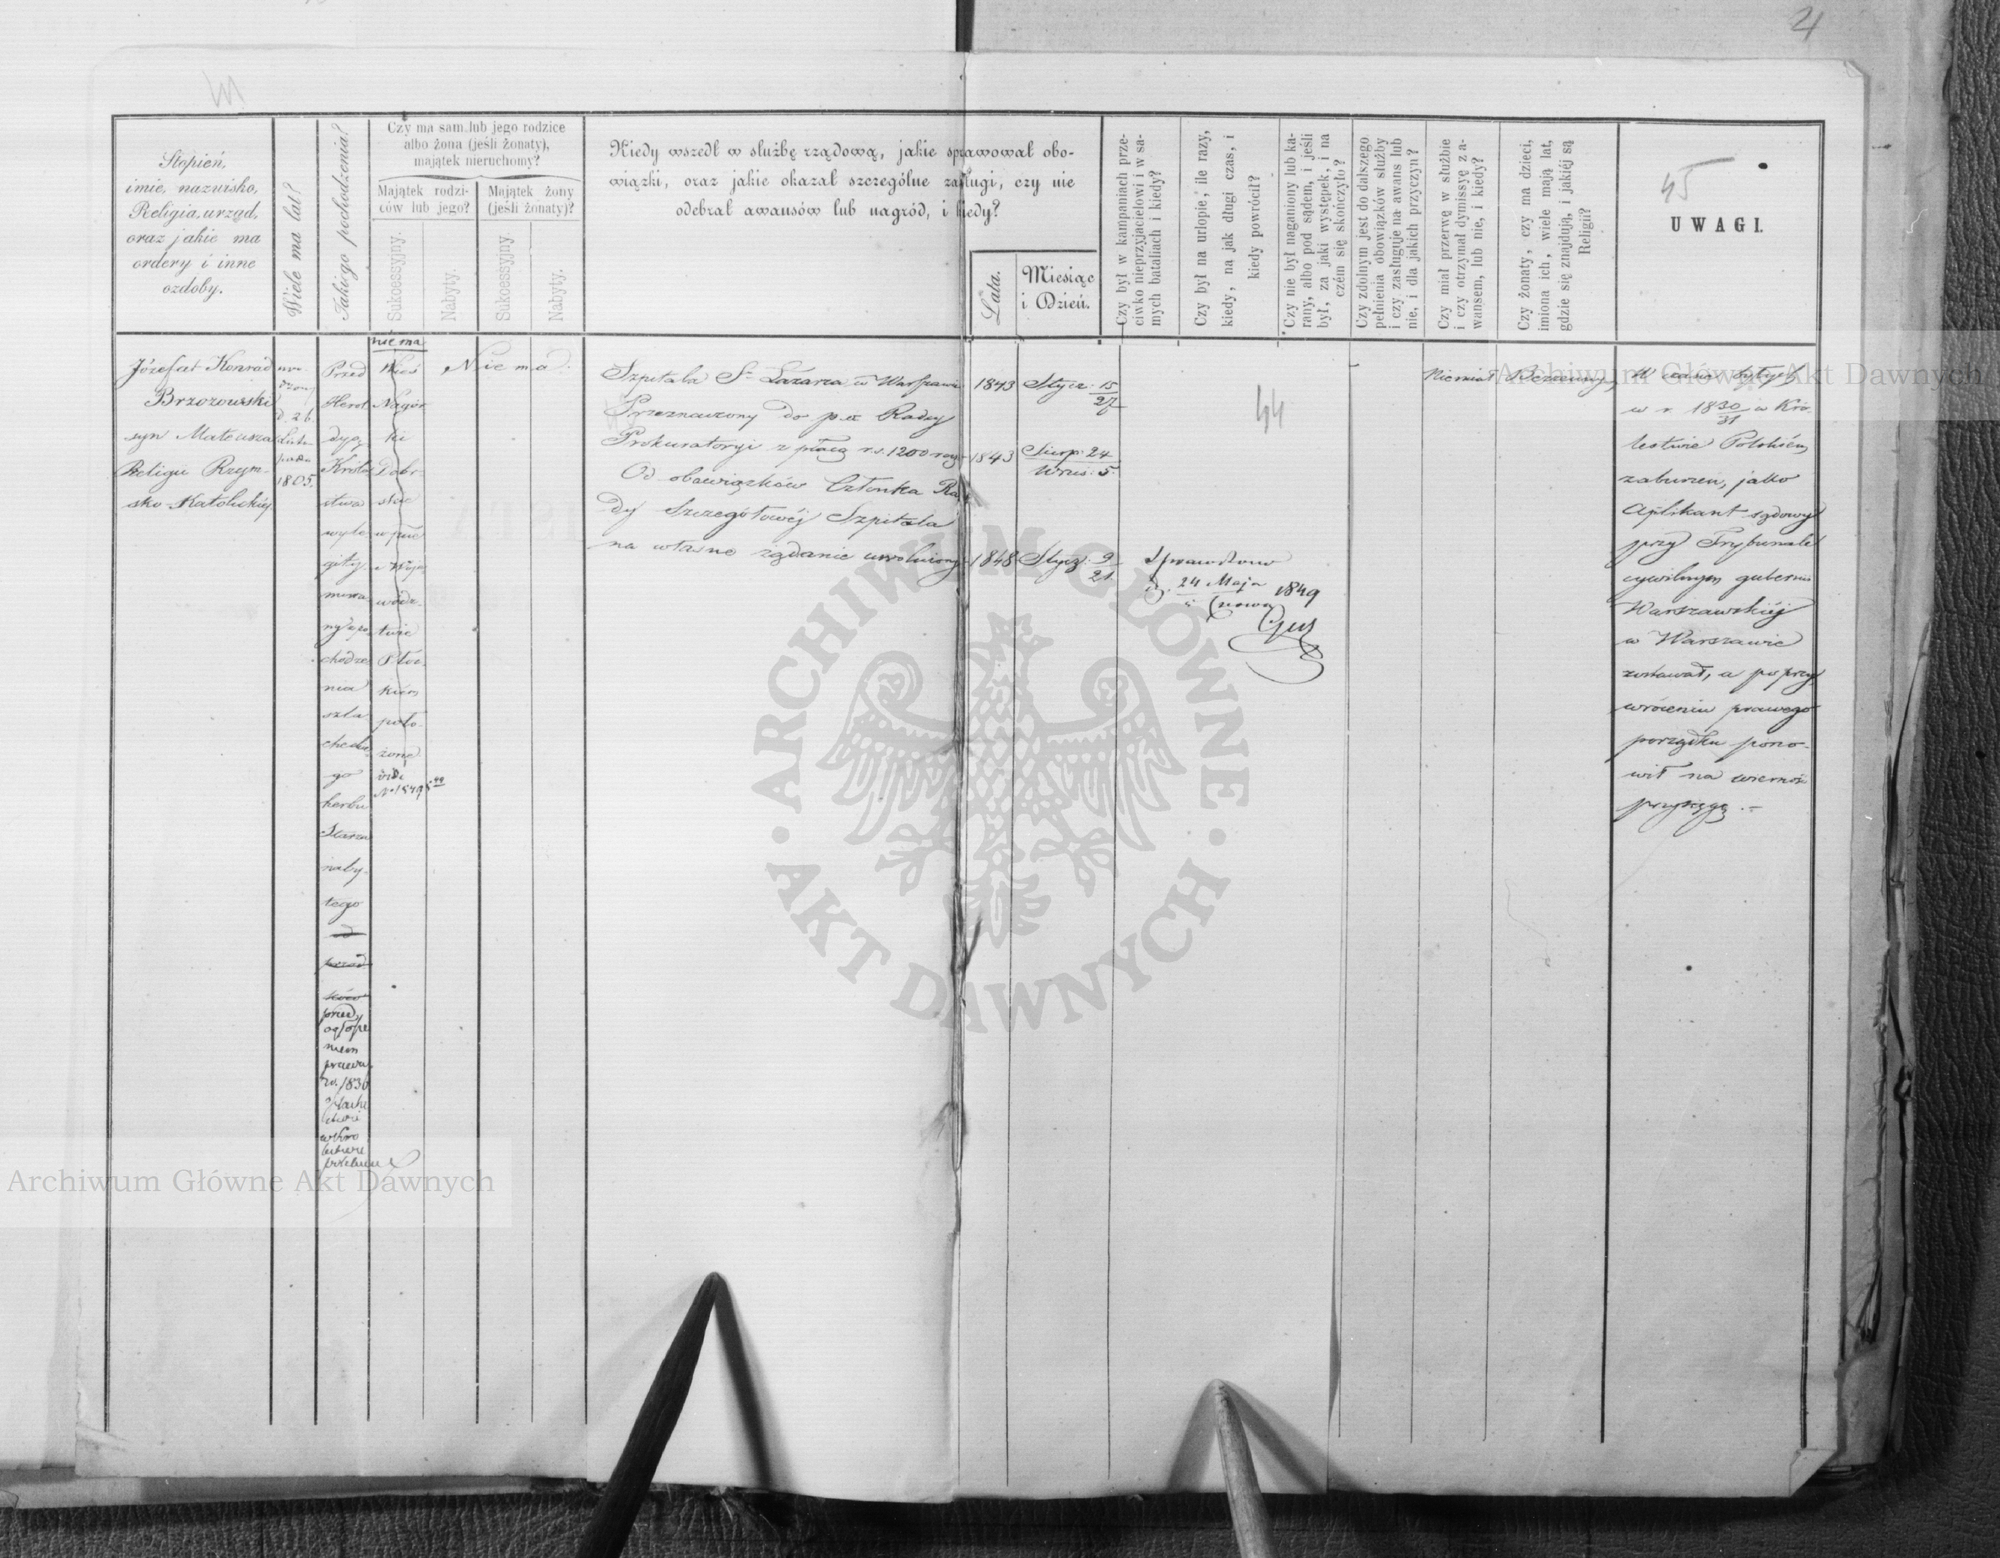 4
45
Stopień,
imie, nazwisko,
Religia, urząd,
oraz jakie ma
ordery i inne
ozdoby.
Wiele ma lat?
Jakiego pochodzenia?
Czy ma sam lub jego rodzice
albo żona (jeśli żonaty),
majątek nieruchomy?
Majątek rodzi-
ców lub jego?
Majątek żony
(jeśli żonaty)?
Sukcessyjny.
Nabyty.
Sukcessyjny.
Nabyty.
Kiedy wszedł w służbę rządową, jakie sprawował obo-
wiązki, oraz jakie okazał szczególne zasługi, czy nie
odebrał awansów lub nagród, i kiedy?
Lata.
Miesiąc
i Dzień.
Czy był w kampaniach prze-
ciwko nieprzyjacielowi i w sa-
mych bataliach i kiedy?
Czy był na urlopie, ile razy,
kiedy, na jak długi czas, i
kiedy powrócił?
Czy nie był naganiony lub ka-
rany, albo pod sądem, i jeśli
był, za jaki występek, i na
czém się skończyło?
Czy zdolnym jest do dalszego
pełnienia obowiązków służby
i czy zasługuje na awans lub
nie, i dla jakich przyczyn?
Czy miał przerwę w służbie
i czy otrzymał dymissyę z a-
wansem, lub nie, i kiedy?
Czy żonaty, czy ma dzieci,
imiona ich, wiele mają lat,
gdzie się znajdują, i jakiéj są
Religii?
UWAGI.
Józefat Konrad
Brzozowski
syn Mateusza
Religii Rzym-
sko Katolickiéj
uro-
dzony
d. 26
Listo-
pada
1805.
Przed
Herol
dyą
Króle
stwa
wyle
gity
mowa
ny z po
chodze
nia
szla
checkie
go
herbu
Starza
naby-
tego
przed
ogłosze
niem
prawa
w Kró
lestwie
nie ma
Wieś
Nagór
ki
Dobr-
skie
w Woje
wódz-
twie
Płoc-
kiém
poło-
żone
vide
No 1849
Niema.
Szpitala St Łazarza w Warszawie
Przeznaczony do p.o. Radcy
Prokuratoryi z płacą r.s. 1200 rocz-
Od obowiązków Członka Ra-
dy Szczegółowéj Szpitala
na własne żądanie uwolniony
1843 Stycz: 15/27
1843 Sierp: 24/Wrześ: 5.
1848 Stycz: 9/21.
44
Sprawdzono
d. 24 Maja/5 Czerwca 1849
Niemiał
Bezżenny
W czasie byłych
w r. 1830/31 w Kró-
lestwie Polskiém
zaburzeń, jako
Aplikant sądowy
przy Trybunale
cywilnym gubernii
Warszawskiéj
w Warszawie
zostawał, a po przy
wróceniu prawego
porządku pono-
wił na wierność
przysięgę.
Archiwum Główne Akt Dawnych
ARCHIWUM GŁÓWNE · AKT DAWNYCH ·
Archiwum Główne Akt Dawnych